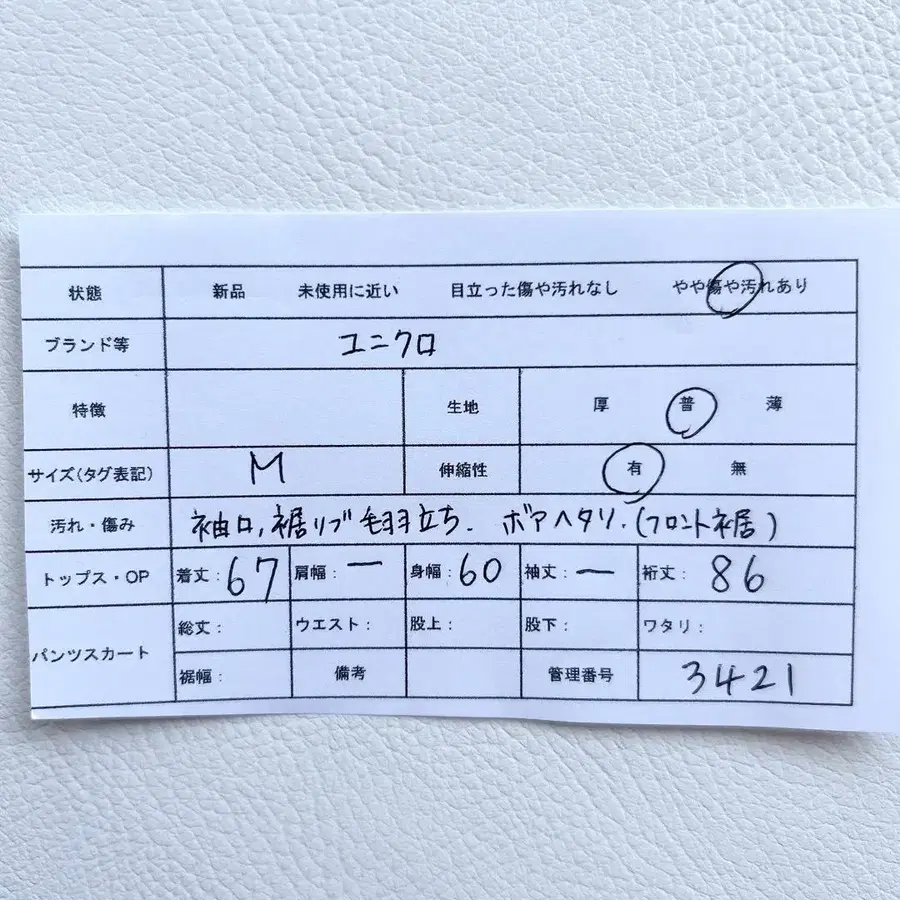 状態 新品 未使用に近い 目立った傷や汚れなし やや傷や汚れあり
ブランド等 ユニクロ
特徴 生地 厚 普 薄
サイズ(タグ表記) M 伸縮性 有 無
汚れ・傷み 袖口,裾リブ毛羽立ち. ボアヘタリ.(フロント裾)
トップス・OP 着丈:67 肩幅:ー 身幅:60 袖丈:ー 裄丈:86
パンツスカート 総丈: ウエスト: 股上: 股下: ワタリ:
裾幅: 備考 管理番号 3421